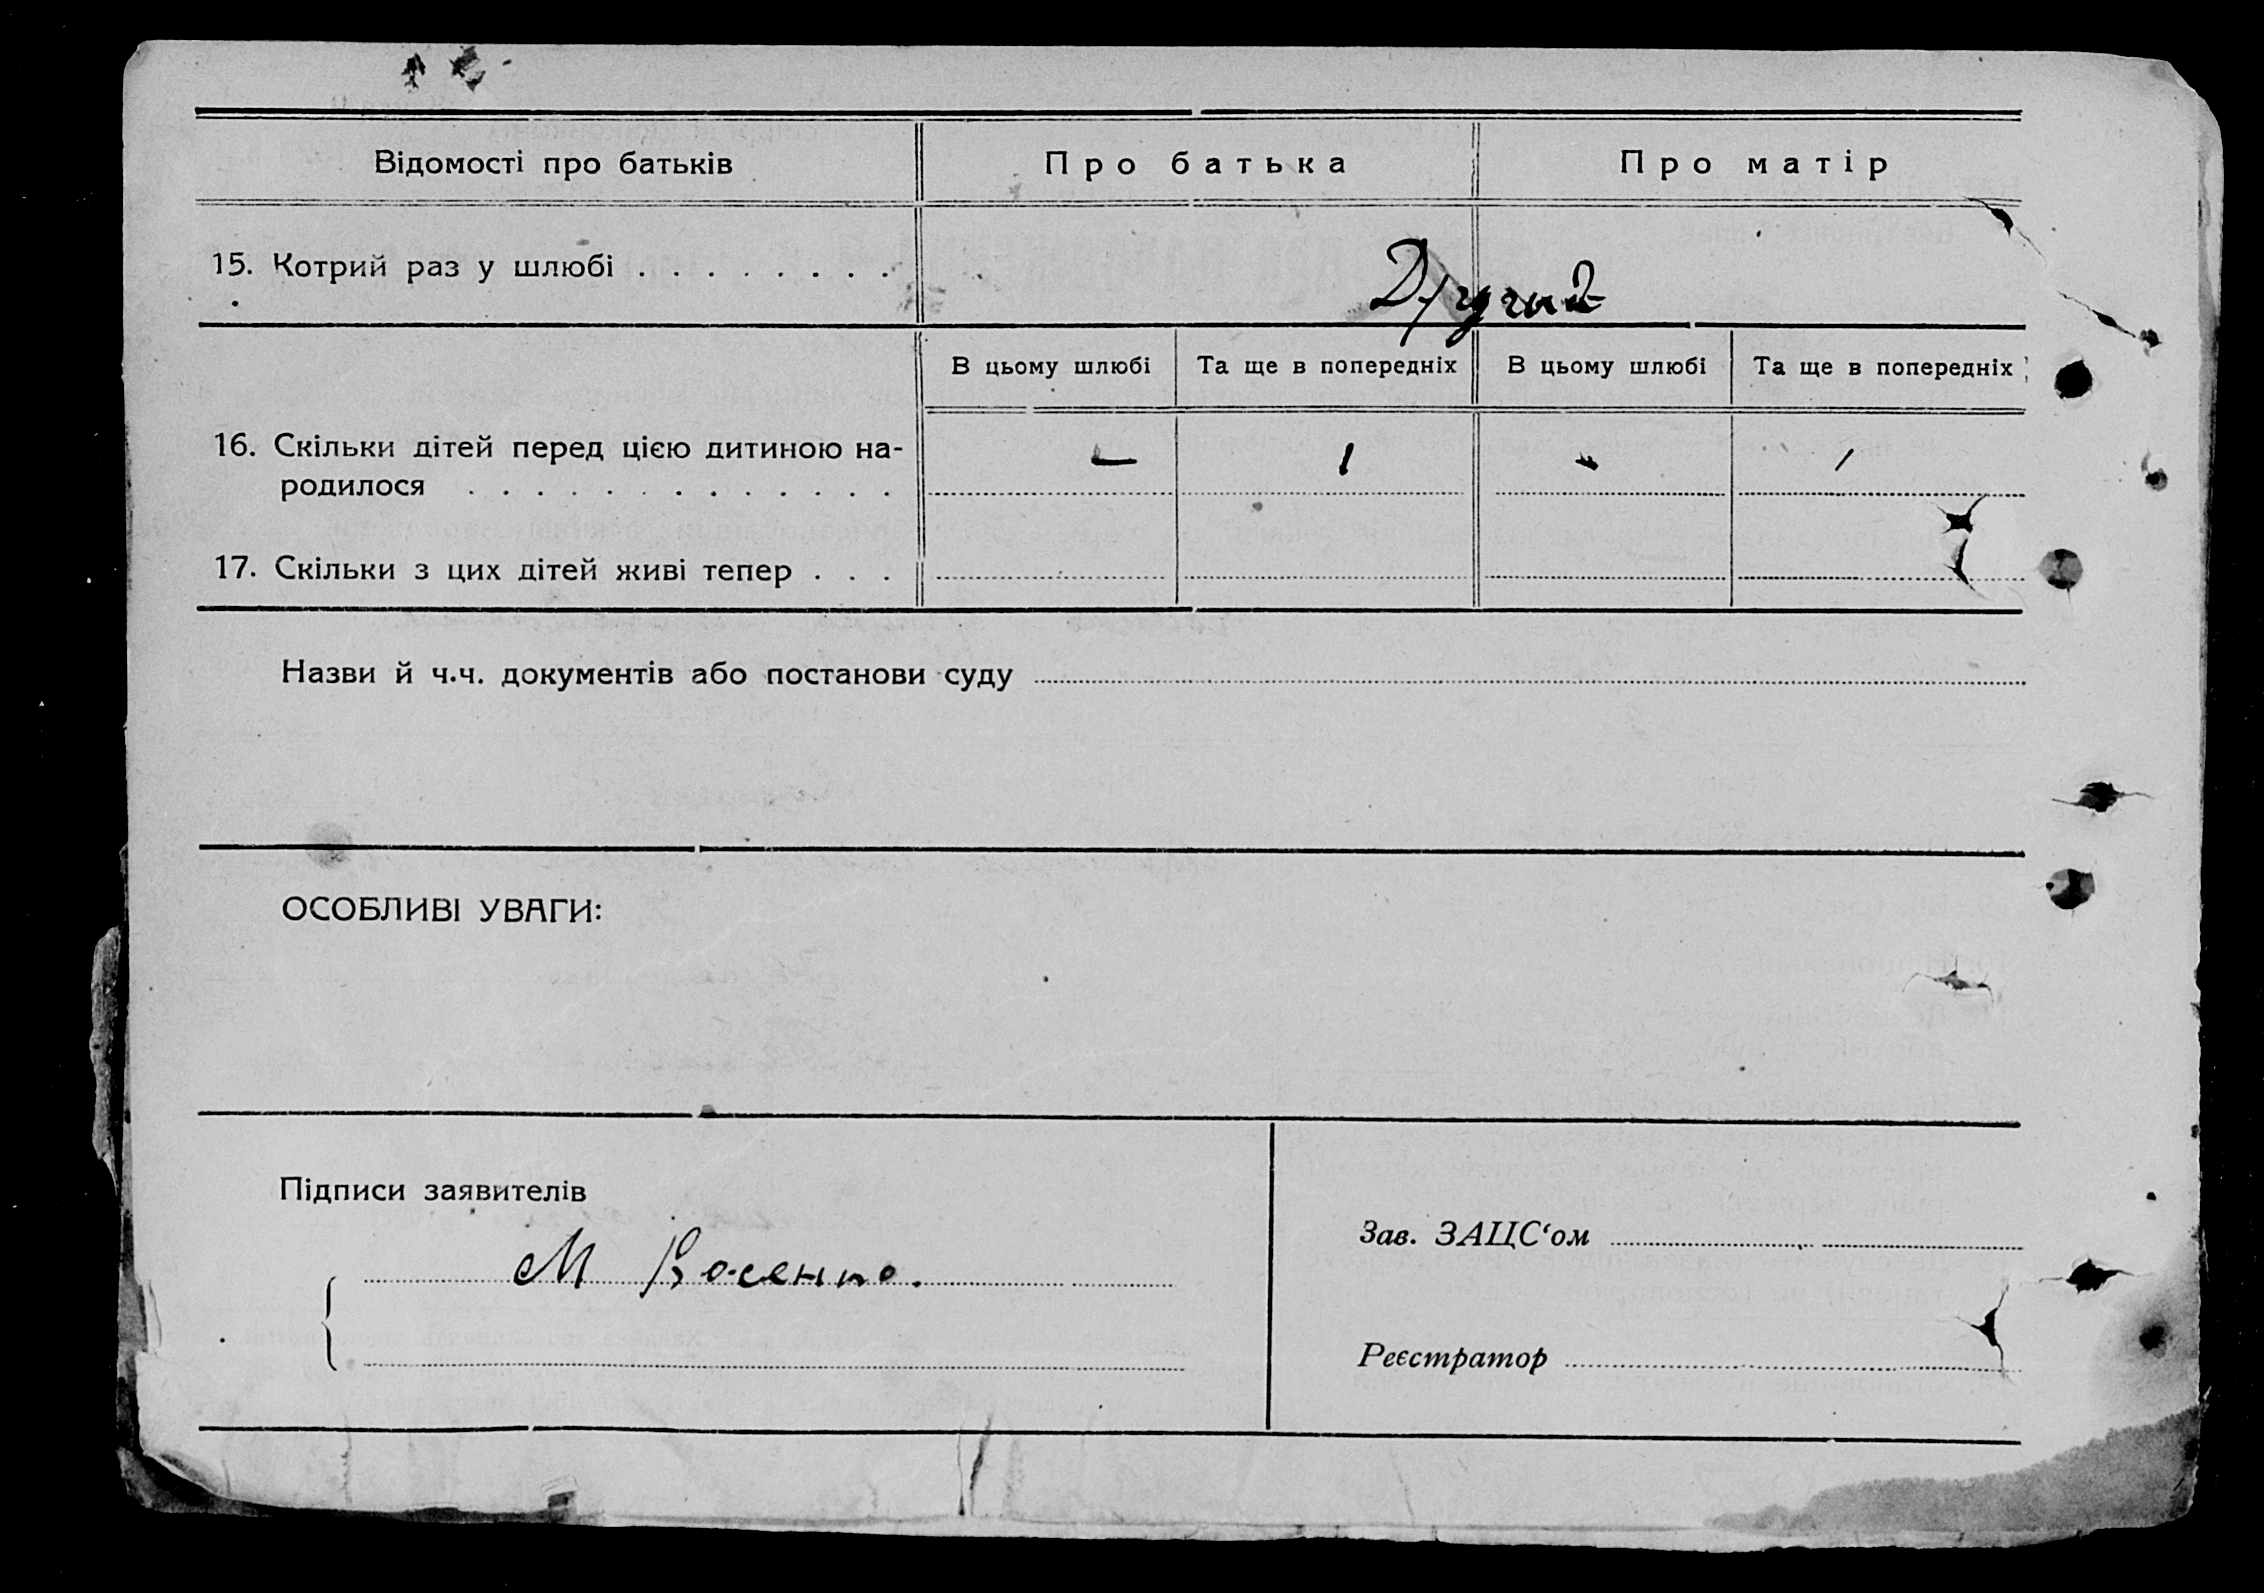 Відомості про батьків Про батька Про матір
15. Котрий раз у шлюбі . . . . . . . . Другий
В цьому шлюбі Та ще в попередніх В цьому шлюбі Та ще в попередніх
16. Скільки дітей перед цією дитиною на-
родилося . . . . . . . . . . . . . — 1 - 1
17. Скільки з цих дітей живі тепер . . .
Назви й ч.ч. документів або постанови суду
ОСОБЛИВІ УВАГИ:
Підписи заявителів
Зав. ЗАЦС‘ом
М
Реєстратор